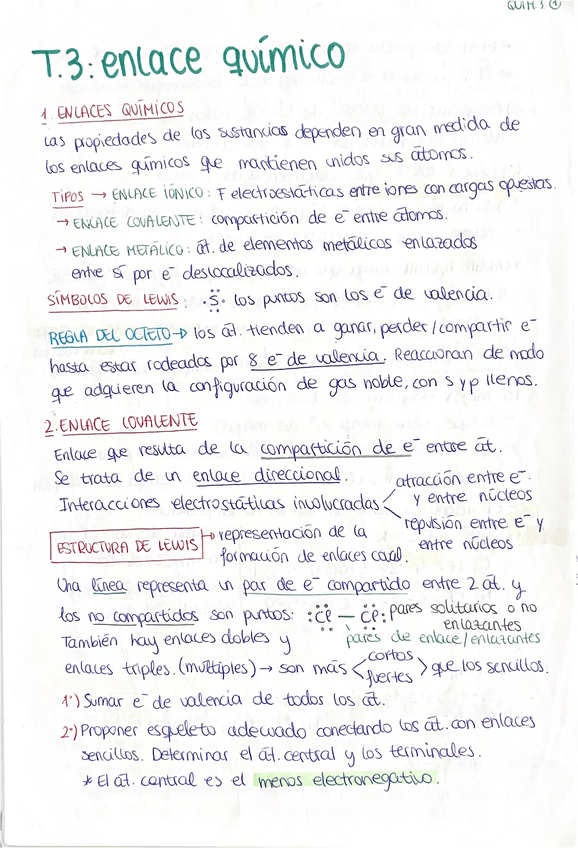 QUIM 3 1
T.3: enlace químico
1. ENLACES QUÍMICOS
Las propiedades de las sustancias dependen en gran medida de
los enlaces químicos que mantienen unidos sus átomos.
TIPOS → ENLACE IÓNICO: F electroestáticas entre iones con cargas opuestas.
→ ENLACE COVALENTE: compartición de e⁻ entre átomos.
→ ENLACE METÁLICO: āt. de elementos metálicos enlazados
entre sí por e⁻ deslocalizados.
SÍMBOLOS DE LEWIS: ·S̈· los puntos son los e⁻ de valencia.
REGLA DEL OCTETO → los āt. tienden a ganar, perder/compartir e⁻
hasta estar rodeados por 8 e⁻ de valencia. Reaccionan de modo
que adquieren la configuración de gas noble, con s y p llenos.
2. ENLACE COVALENTE
Enlace que resulta de la compartición de e⁻ entre āt.
Se trata de un enlace direccional.
Interacciones electrostáticas involucradas < atracción entre e⁻
y entre núcleos
repulsión entre e⁻ y
entre núcleos
ESTRUCTURA DE LEWIS → representación de la
formación de enlaces coval.
Una línea representa un par de e⁻ compartido entre 2 āt. y
los no compartidos son puntos: :Cl — Cl: pares solitarios o no
enlazantes
También hay enlaces dobles y pares de enlace/enlazantes
enlaces triples. (múltiples) → son más < cortos
fuertes > que los sencillos.
1º) Sumar e⁻ de valencia de todos los āt.
2º) Proponer esqueleto adecuado conectando los āt. con enlaces
sencillos. Determinar el āt. central y los terminales.
* El āt. central es el menos electronegativo.